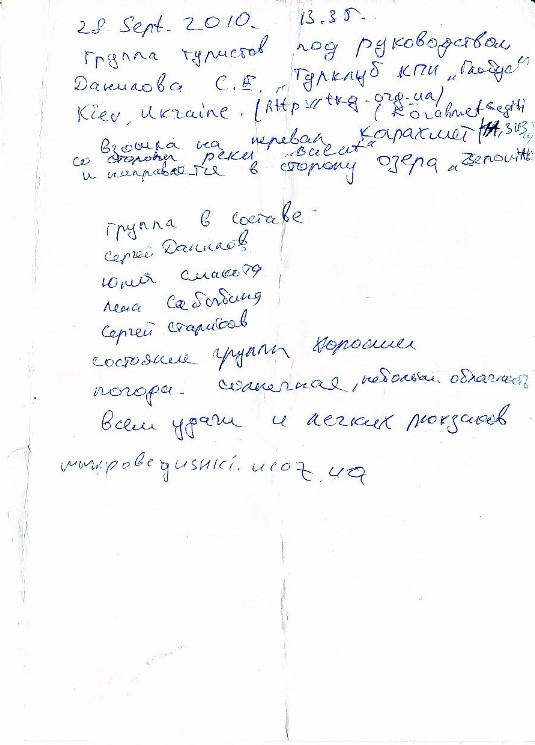 28 Sept. 2010. 13.35.
группа туристов под руководством
Данилова С.Е. „Турклуб КПИ „Глобус"
Kiev, Ukraine. (http://tkg.org.ua)
взошла на перевал Карахмет
со стороны реки
и направляется в сторону озера
группа в составе
Сергей Данилов
Юлия
Лена
Сергей
состояние группы хорошее
погода - солнечная, небольш. облачность
всем удачи и легких рюкзаков
www.pobegushki.ucoz.ua